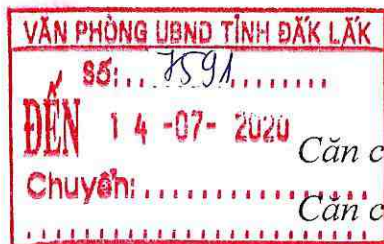 VĂN PHÒNG UBND TỈNH ĐẮK LẮK
Số: .. 7591 ........
ĐẾN 14 -07- 2020
Căn c
Chuyển: ............
Căn c